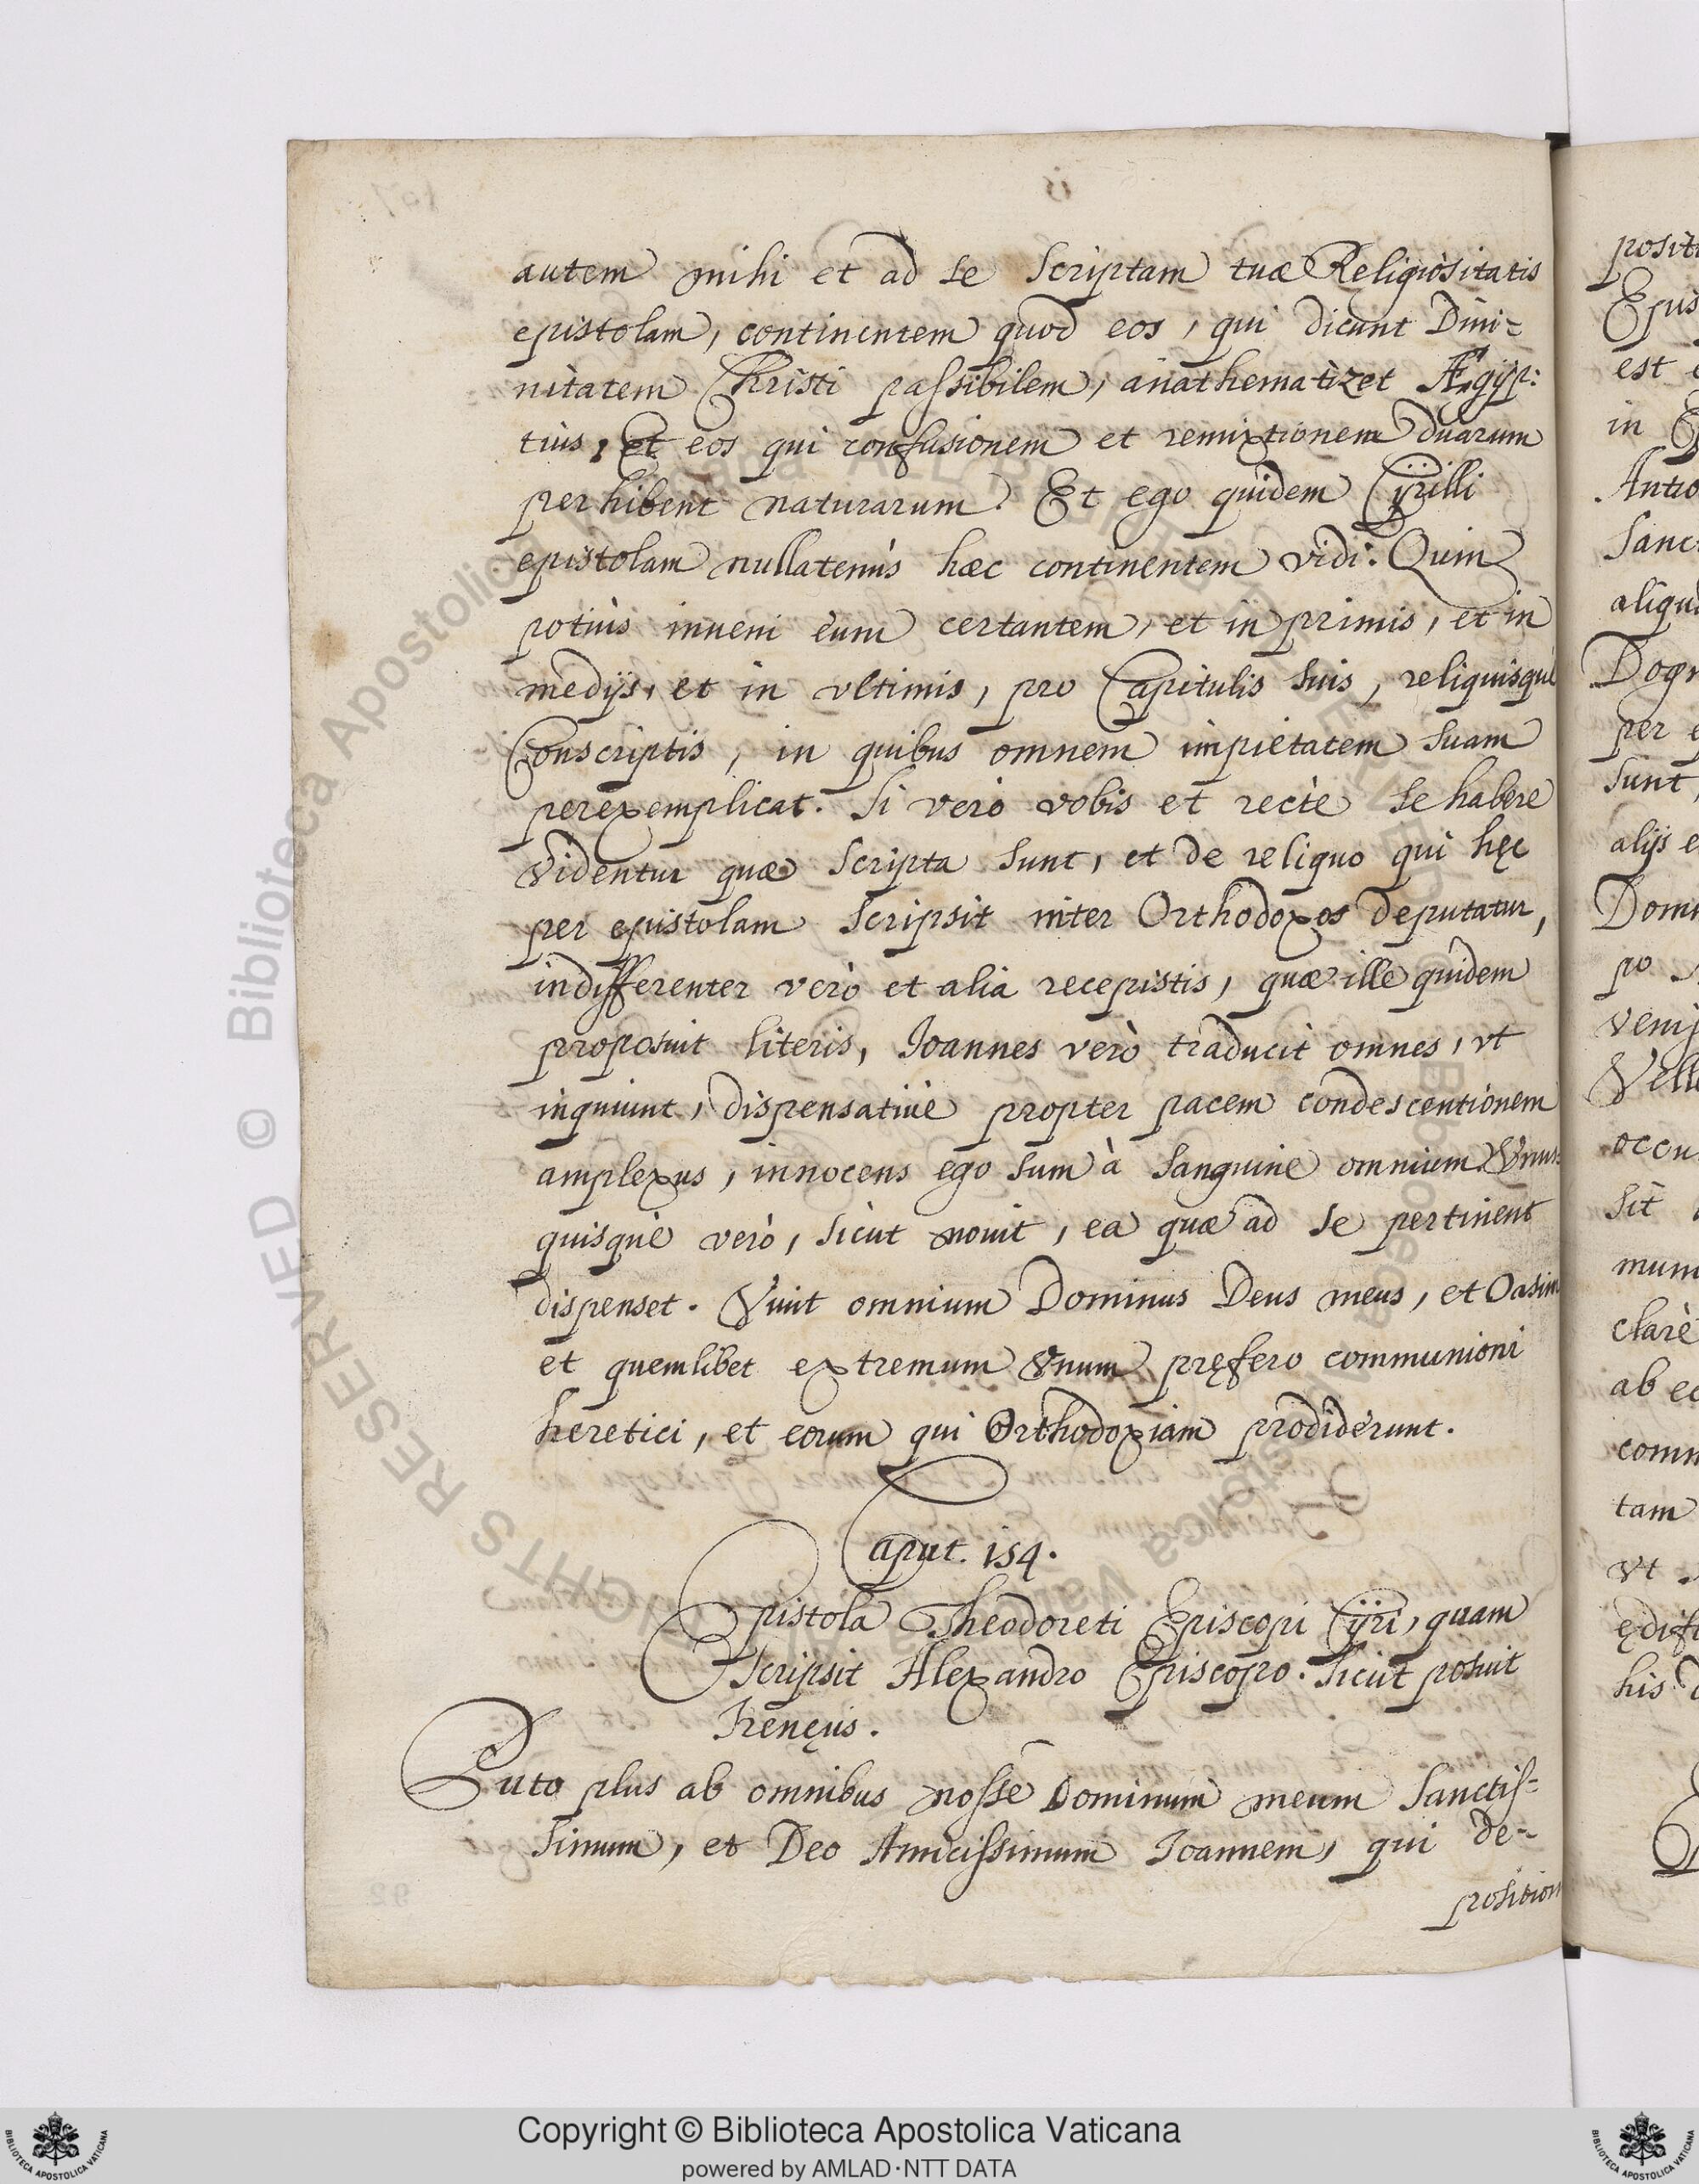 autem mihi et ad se scriptam tuæ Religiositatis
epistolam, continentem quod eos, qui dicunt Diui-
nitatem Christi passibilem, anathematizet Ægÿp:
tius, et eos qui confusionem et remixtionem duarum
perhibent naturarum. Et ego quidem Cÿrilli
epistolam nullatenùs hæc continentem vidi: Quin
potiùs inueni eum certantem, et in primis, et in
medijs, et in vltimis, pro Capitulis suis, reliquisque
Conscriptis, in quibus omnem impietatem suam
perexemplicat. Si verò vobis et rectè se habere
videntur quæ scripta sunt, et de reliquo qui hęc
per epistolam scripsit inter Orthodoxos deputatur,
indifferenter verò et alia recepistis, quæ ille quidem
proposuit literis, Ioannes verò traducit omnes, vt
inquiunt, dispensatiuè propter pacem condescentionem
amplexus, innocens ego sum à sanguine omnium. Vnus
quisquè verò, sicut nouit, ea quæ ad se pertinent
dispenset. Viuit omnium Dominus Deus meus, et Oasim
et quemlibet extremum vnum pręfero communioni
heretici, et eorum qui Orthodoxiam prodiderunt.
Caput. 154.
Epistola Theodoreti Episcopi Cÿri, quam
scripsit Alexandro Episcopo. sicut posuit
Irenęus.
Puto plus ab omnibus nosse Dominum meum Sanctis-
simum, et Deo Amicissimum Ioannem, qui de-
position
posit
Epis
est
in
Antio
Sanc
aliqu
Dog
per e
sunt,
alijs e
Dom
po
veni
Vell
occu
sit
mun
clarè
ab ec
comm
tam
vt
ędifi
his
© Biblioteca Apostolica Vaticana ALL RIGHTS RESERVED
Copyright © Biblioteca Apostolica Vaticana
powered by AMLAD·NTT DATA
BIBLIOTECA APOSTOLICA VATICANA
BIBLIOTECA APOSTOLICA VATICANA